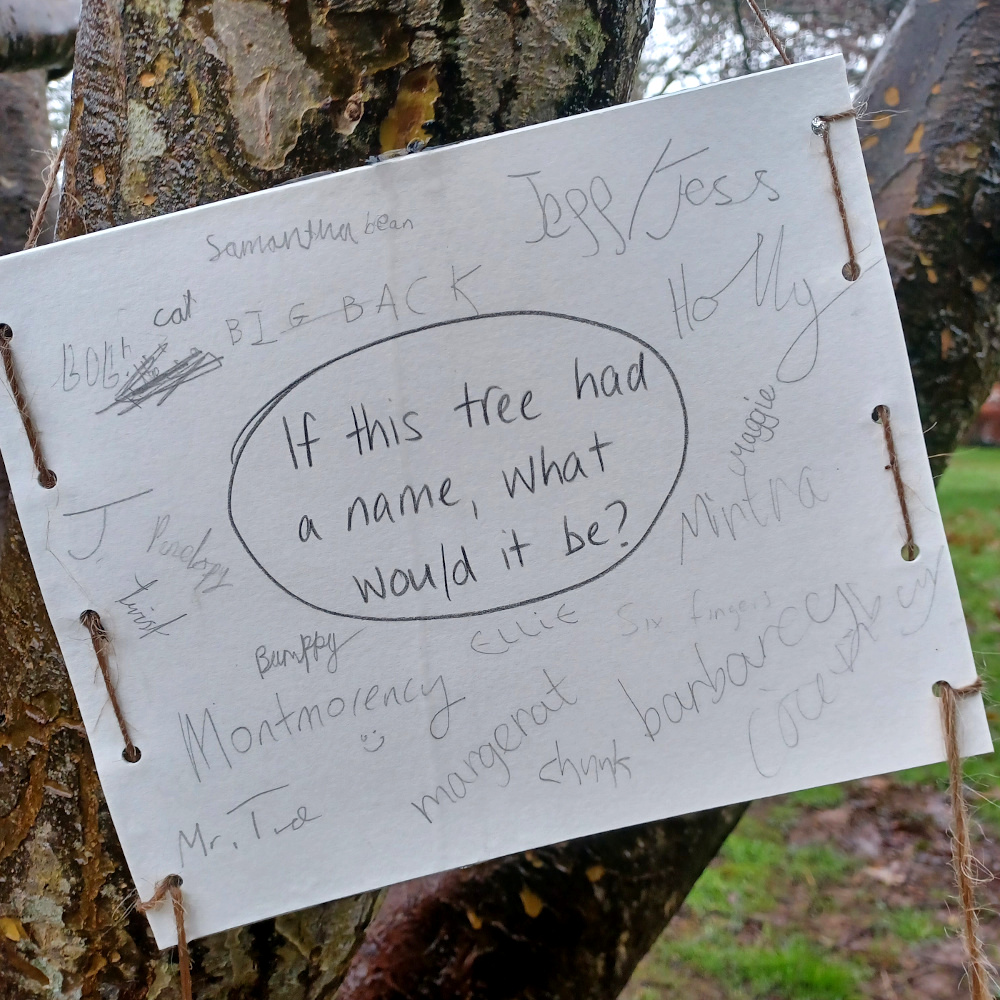 Samantha bean
Jeff/Jess
cat
BIG BACK
Holly
If this tree had
a name, what
would it be?
maggie
Mintna
J.
twist
Bumppy
ELLIE
Six fingers
Montmorency
barbarccy
margerat
chunk
Mr. Tree